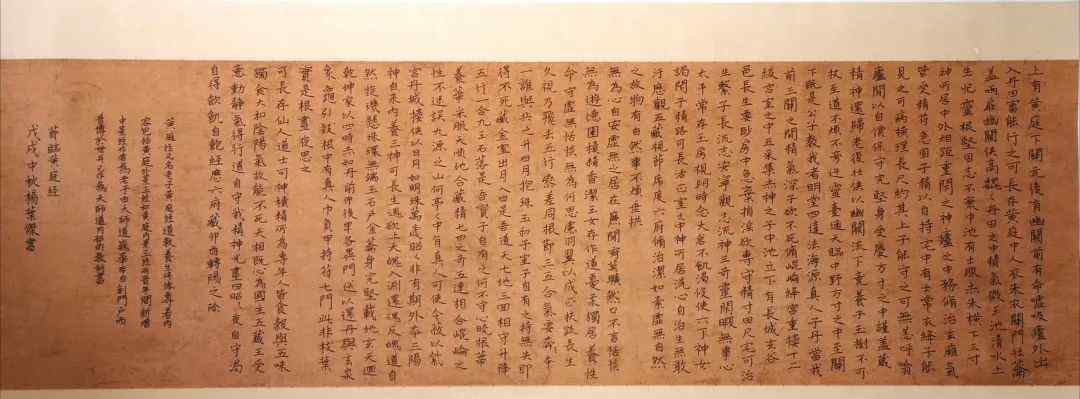 上有黄庭下關元後有幽闕前有命嘘吸廬外出
入丹田審能行之可長存黄庭中人衣朱衣關門牡籥
盖兩扉幽闕俠高巍々丹田之中精氣微玉池清水上
生肥靈根堅固志不衰中池有士服赤朱横下三寸
神所居中外相距重閉之神廬之中務脩治玄膺氣
管受精符急固子精以自持宅中有士常衣絳子能
見之可病横理長尺約其上子能守之可無恙呼噏
廬間以自償保守完堅身受慶方寸之中謹盖藏
精神還歸老復壯俠以幽闕流下竟養子玉樹不可
杖至道不煩不旁迕靈臺通天臨中野方寸之中至關
下既是公子教我者明堂四達法海源真人子丹當我
前三關之間精氣深子欲不死脩崐崘絳宫重樓十二
級宫室之中五采集赤神之子中池立下有長城玄谷
邑長生要眇房中急棄捐淫欲專守精寸田尺宅可治
生繫子長流志安寧觀志流神三奇靈閑暇無事心
太平常存玉房視明時念大倉不飢渴役使六丁神女
謁閉子精路可長活正室之中神所居洗心自治無敢
汙歷觀五藏視節度六府脩治潔如素虚無自然
之故物有自然事不煩垂拱
無為心自安虚無之居在廉間寂莫曠然口不言恬惔
無為遊德園積精香潔玉女存作道憂柔獨居養性
命守虚無恬惔無為何思慮羽翼以成正扶踈長生
久視乃飛去五行參差同根節三五合氣要本
一誰與共之升日月抱珠玉和子室子自有之持無失即
得不死藏金室出月入日是吾道天七地三回相守升降
五行一合九玉石落々是吾寶子自有之何不守心曉根蔕
養華采服天順地合藏精七日之奇五連相合崐崘之
性不迷誤九源之山何亭々中有真人可使令蔽以紫
宫丹城樓俠以日月如明珠萬歲昭々非有期外本三陽
神自來内養三神可長生魂欲上天魄入淵還魂反魄道自
然旋璣懸珠環無端玉石户金籥身完堅載地玄天迴
乾坤象以四時赤如丹前仰後卑各異門送以還丹與玄泉
象龜引致根中有真人巾負甲持符七門此非枝葉
實是根晝夜思之
可長存仙人道士可神積精所為專年人皆食穀與五味
獨食大和陰陽氣故能不死天相既心為國主五藏王受
意動静氣得行道自守我精神光晝日昭々夜自守渴
自得飲飢自飽經歷六府藏卯酉轉陽之陰
節臨黄庭經
戊戌中秋楊葉傑書